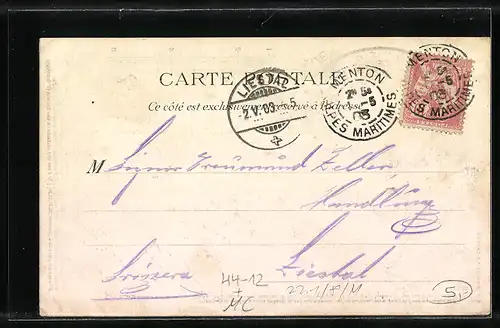 CARTE POSTALE
Ce côté est exclusivement réservé à l'adresse
LIESTAL
-2.V.03.-5
MENTON
ALPES MARITIMES
MENTON
ALPES MARITIMES
M Signor Traumund Zeller
Handlung
Svizzera Liestal
44-12
+
MC
22.1/8/M
5,